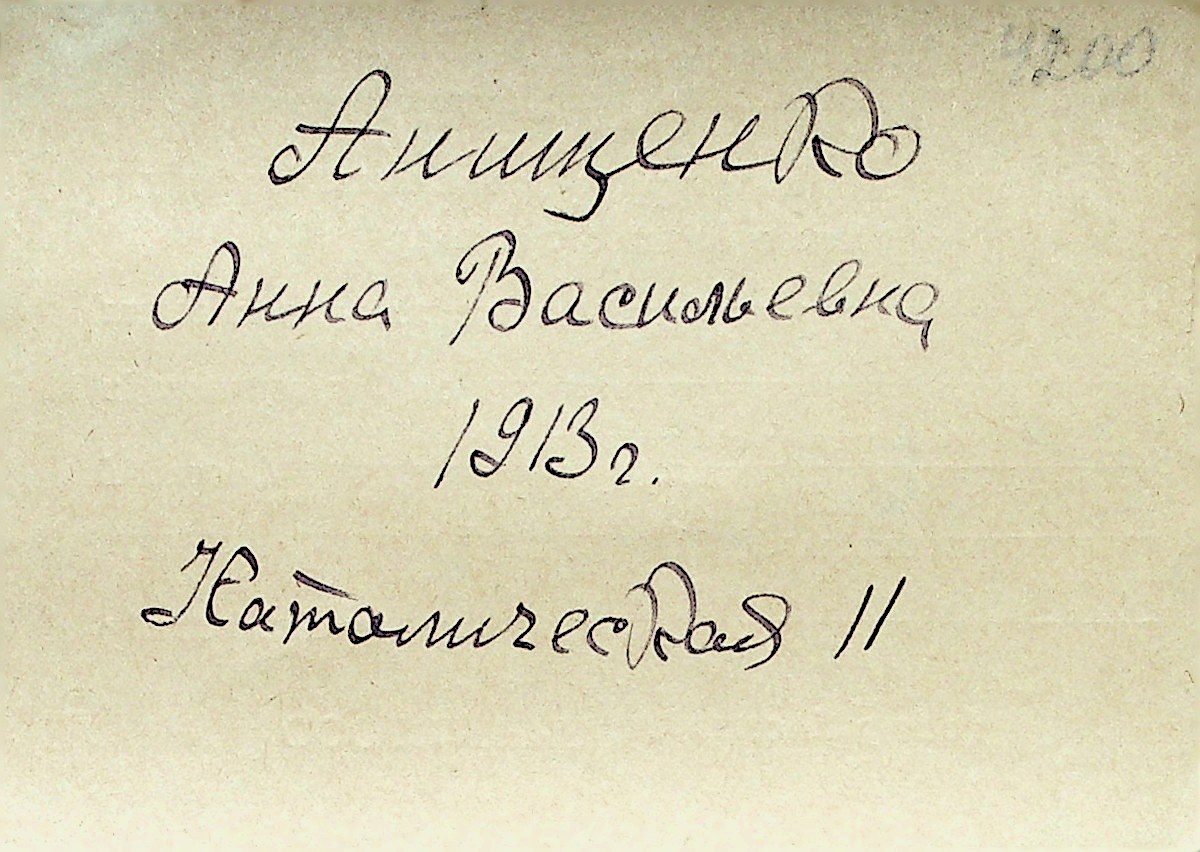 4200
Анищенко
Анна Васильевна
1913 г.
Католическая 11